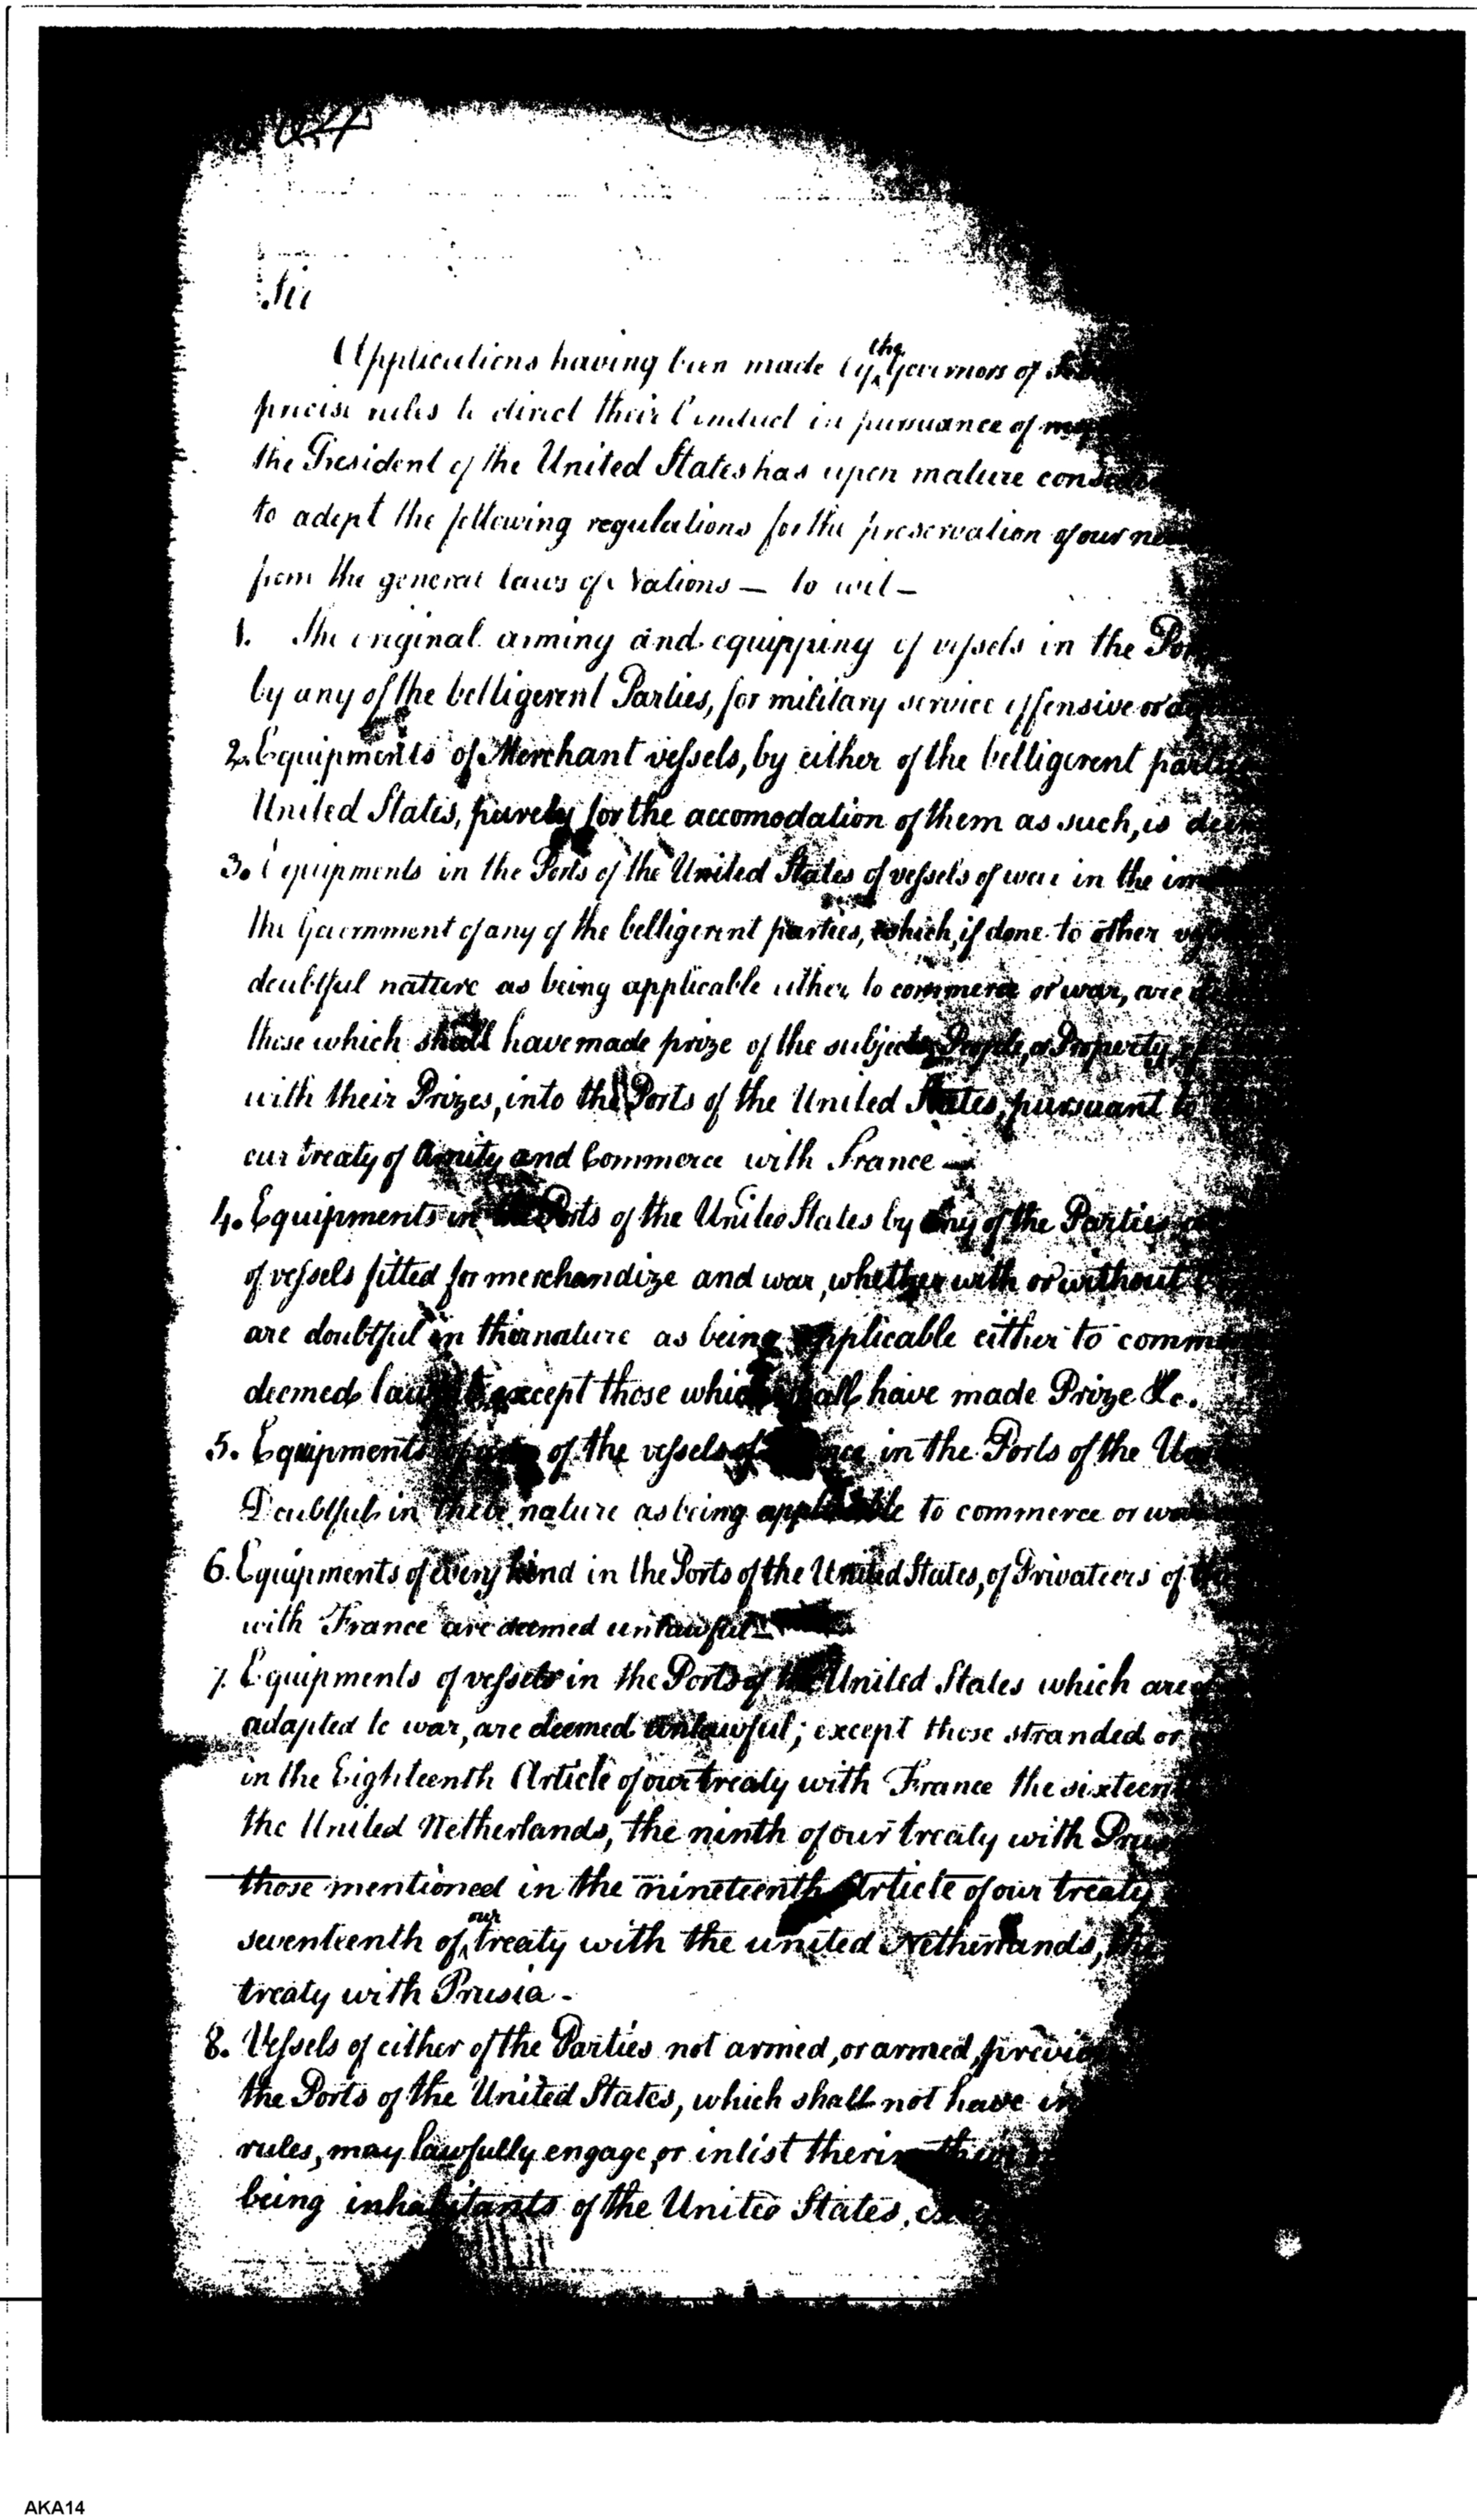 Sir
Applications having been made by the Governors of
precise rules to direct their Conduct in pursuance of
the President of the United States has upon mature
to adopt the following regulations for the preservation of our
from the general laws of Nations — to wit —
1. The original arming and equipping of vessels in the
by any of the belligerent Parties, for military service offensive or
2. Equipments of Merchant vessels, by either of the belligerent
United States, purely for the accomodation of them as such, is
3. Equipments in the Ports of the United States of vessels of war in the
the Government of any of the belligerent parties, which, if done to other
doubtful nature as being applicable either to commerce or war, are
those which shall have made prize of the subjects, People, or Property,
with their Prizes, into the Ports of the United States, pursuant to
our treaty of Amity and Commerce with France —
4. Equipments in the Ports of the United States by any of the Parties
of vessels fitted for merchandize and war, whether with or without
are doubtful in their nature as being applicable either to
deemed lawful, except those which shall have made Prize &c.
5. Equipments of the vessels of in the Ports of the
Doubtful in their nature as being applicable to commerce or
6. Equipments of every kind in the Ports of the United States, of Privateers of
with France are deemed unlawful —
7. Equipments of vessels in the Ports of the United States which are
adapted to war, are deemed unlawful; except those stranded or
in the Eighteenth Article of our treaty with France the
the United Netherlands, the ninth of our treaty with
those mentioned in the nineteenth Article of our treaty
seventeenth of our treaty with the united Netherlands,
treaty with Prusia -
8. Vessels of either of the Parties not armed, or armed,
the Ports of the United States, which shall not have
rules, may lawfully engage or inlist
being inhabitants of the United States,
AKA14